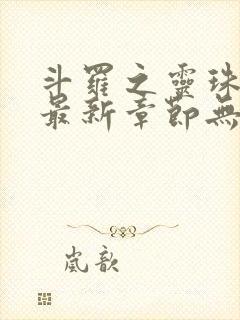 斗羅之靈珠
最新章節無
嵐歆